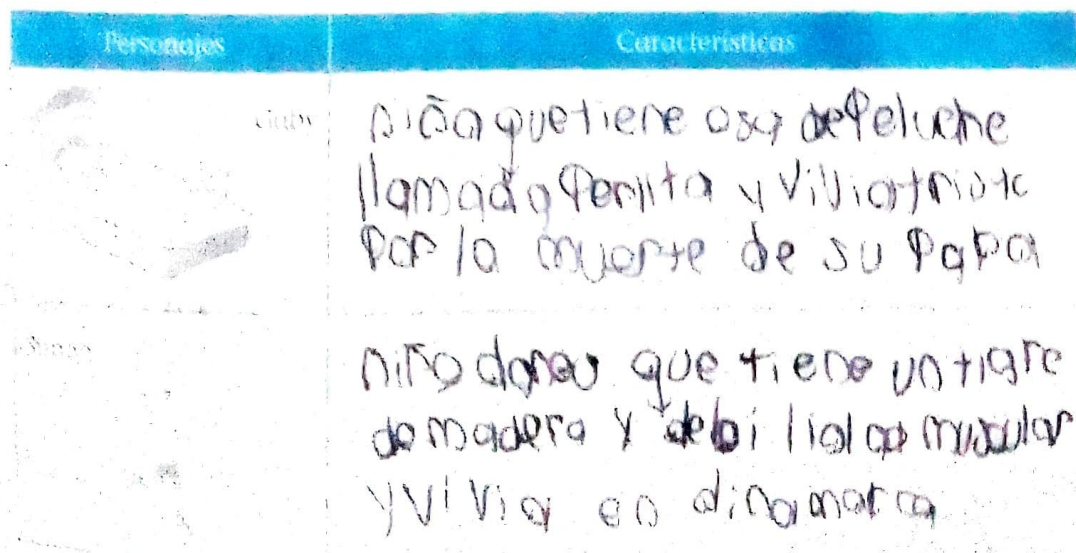 Personajes Características
Gaby
niña que tiene osa de peluche
llamada Perlita y vivia triste
por la muerte de su papa
niño danes que tiene un tigre
de madera y debilidad muscular
y vivia en dinamarca